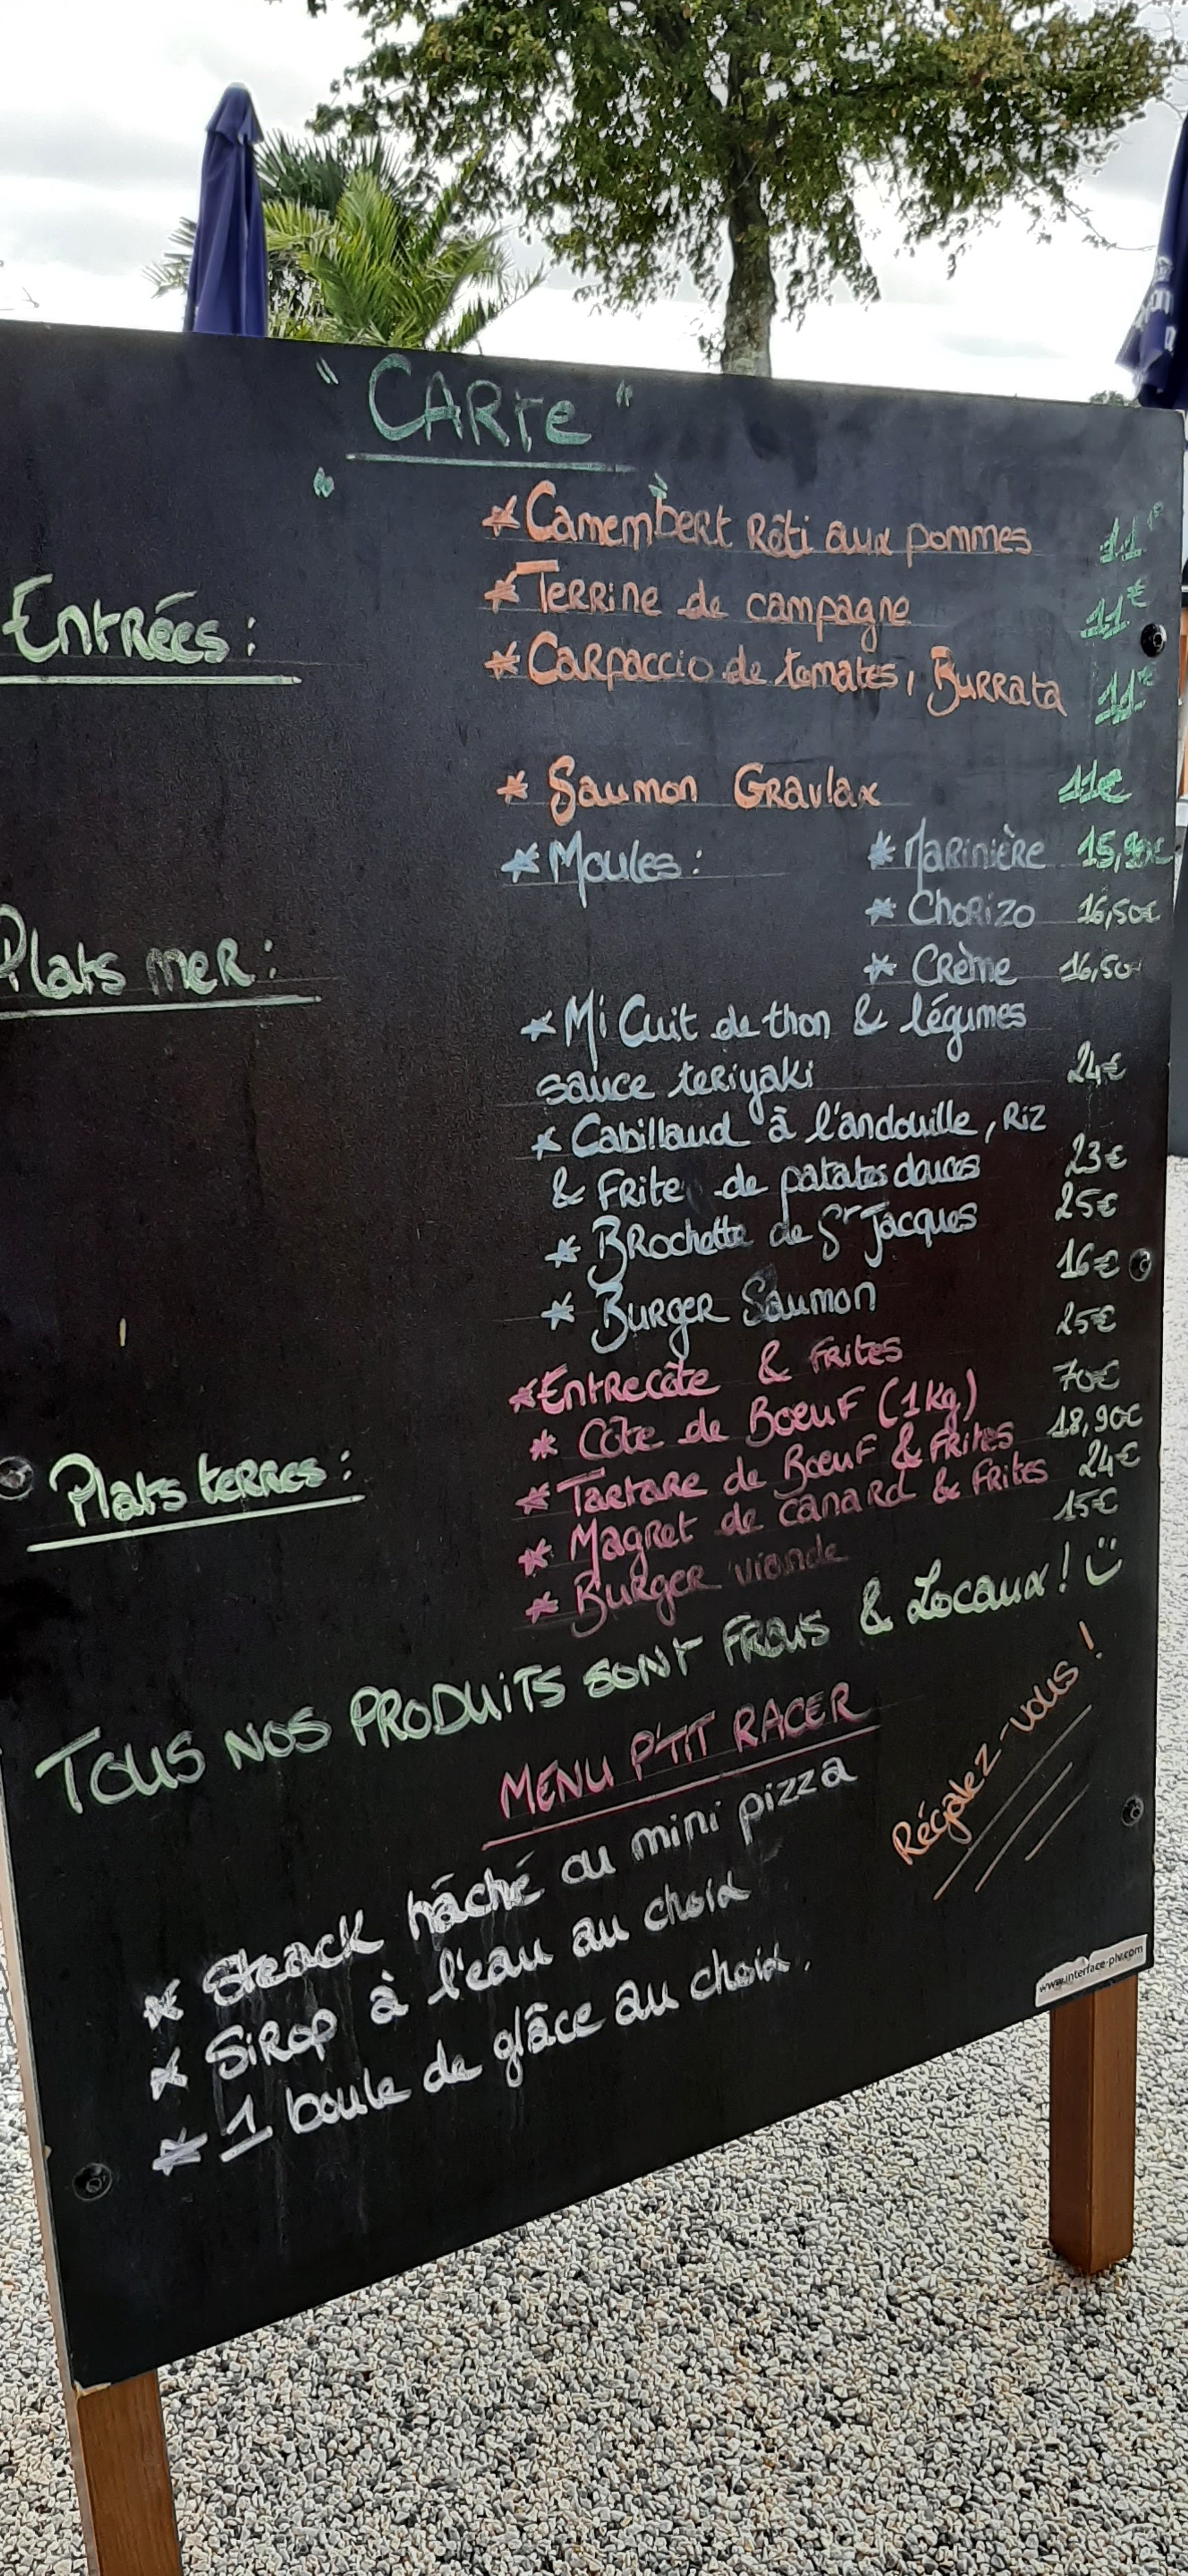 " CARTE "
* Camembert Rôti aux pommes 11€
* Terrine de campagne 11€
Entrées :
* Carpaccio de tomates, Burrata 11€
* Saumon Gravlax 11€
* Moules : * Marinière 15,90€
* Chorizo 16,50€
Plats mer :
* Crème 16,50
* Mi Cuit de thon & légumes
sauce teriyaki 24€
* Cabillaud à l'andouille, Riz
& Frite de patates douces 23€
* Brochette de St Jacques 25€
* Burger Saumon 16€
* Entrecôte & frites 25€
* Côte de Boeuf (1Kg) 70€
Plats terres :
* Tartare de Boeuf & Frites 18,90€
* Magret de canard & Frites 24€
* Burger viande 15€
Tous nos produits sont frais & Locaux !
MENU P'TIT RACER
Régalez-vous !
* Steack hâché ou mini pizza
* Sirop à l'eau au choix
* 1 boule de glâce au choix.
www.interface-plv.com